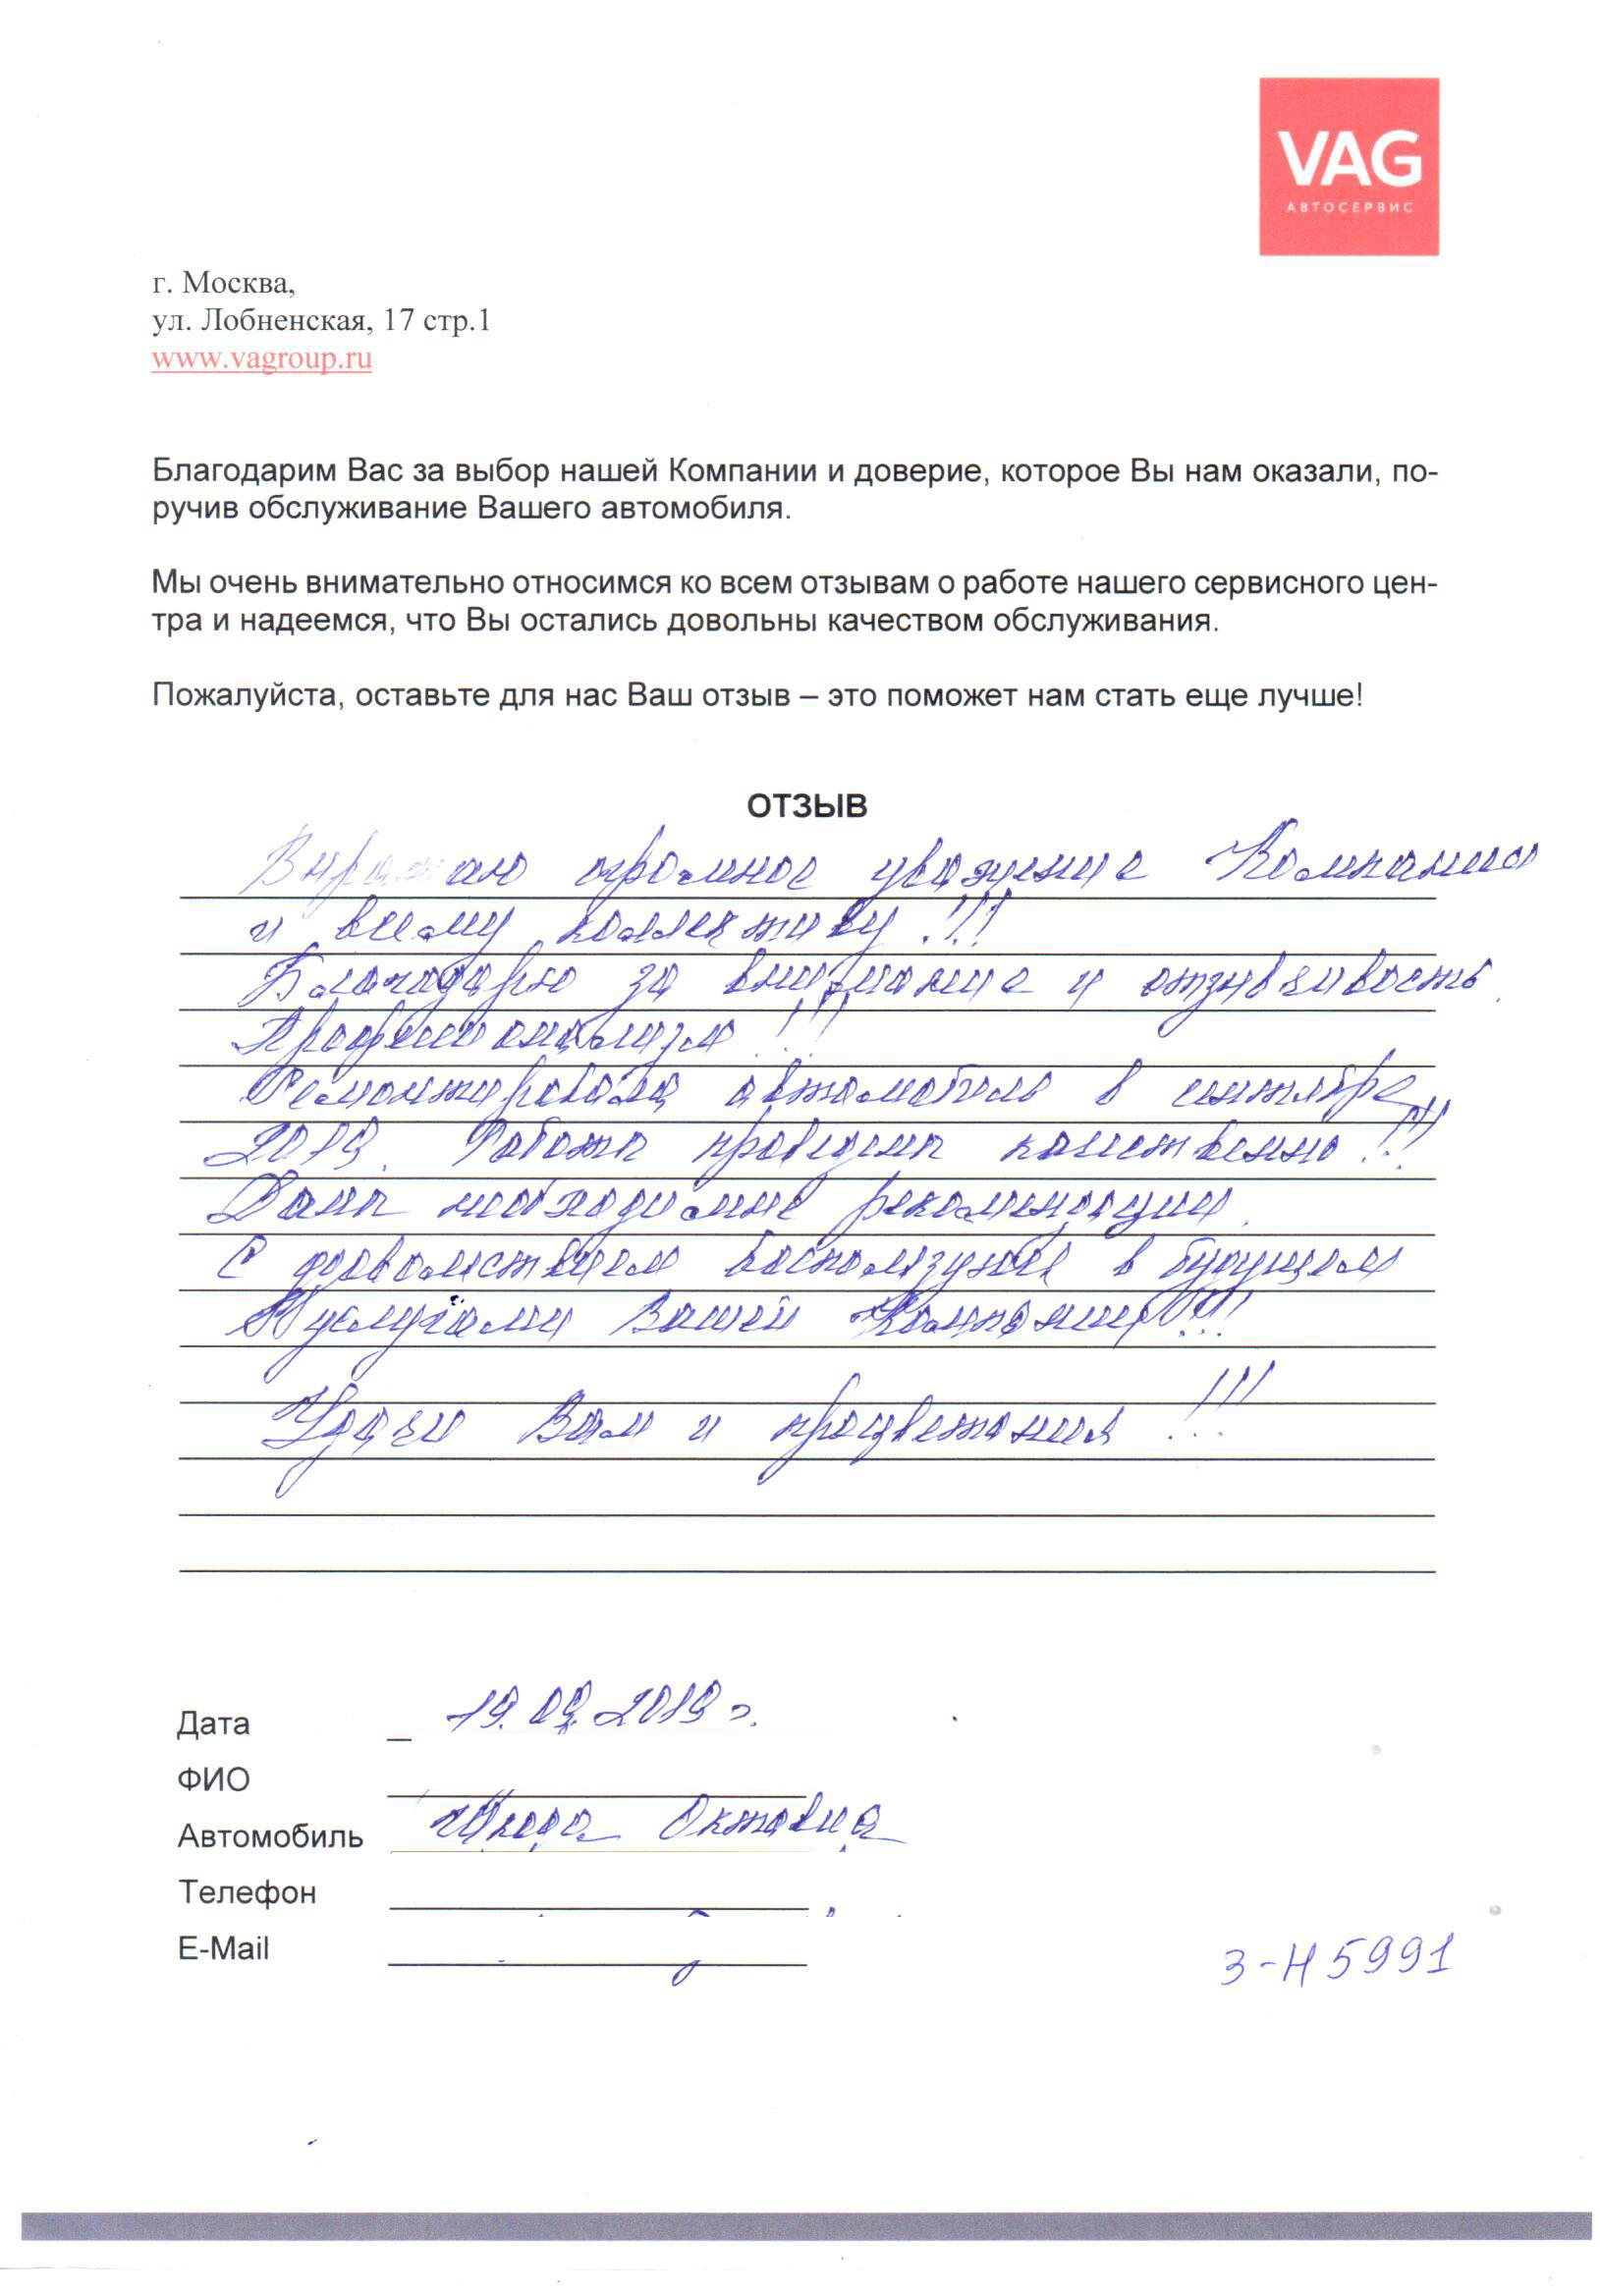 VAG
АВТОСЕРВИС
г. Москва,
ул. Лобненская, 17 стр.1
www.vagroup.ru
Благодарим Вас за выбор нашей Компании и доверие, которое Вы нам оказали, по-
ручив обслуживание Вашего автомобиля.
Мы очень внимательно относимся ко всем отзывам о работе нашего сервисного цен-
тра и надеемся, что Вы остались довольны качеством обслуживания.
Пожалуйста, оставьте для нас Ваш отзыв – это поможет нам стать еще лучше!
ОТЗЫВ
Выражаю огромное уважение Компании
и всему коллективу!!!
Благодарю за внимание и отзывчивость.
Профессионализм!!!
Ремонтировала автомобиль в сентябре
2019. Работа проведена качественно!!!
Даны необходимые рекомендации.
С удовольствием воспользуюсь в будущем
услугами Вашей Компании!!!
Удачи Вам и процветания!!!
Дата 19.09.2019 г.
ФИО
Автомобиль Шкода Октавиа
Телефон
E-Mail
З-Н 5991